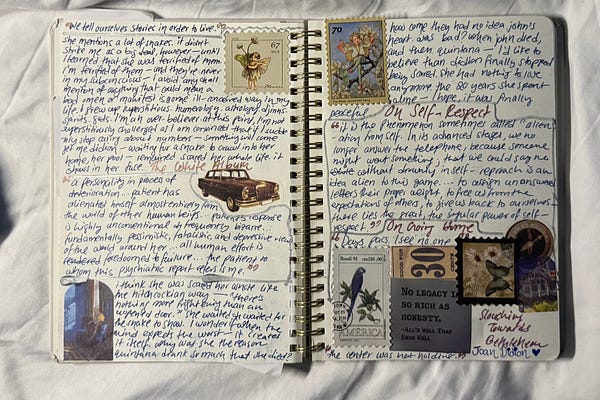 "We tell ourselves stories in order to live."
she mentions a lot of snakes. it didn't
strike me as a big deal, however - until
I learned that she was terrified of them.
I'm terrified of them - and they're never
in my subconscious - I avoid any
mention of anything that could mean a
bad omen or manifest some ill-conceived way in my
life. I grew up superstitious. numerology, astrology, djinns,
saints, gods. I'm an over believer at this point. I'm not
superstitiously challenged as I am convinced that if I
stop caring about numbers - something will come
let me didion - waiting for a snake to crawl into her
home, her pool - remained scared her whole life. it
shows in her face. The White Album
"a personality in process of
deterioration... patient has
alienated himself almost entirely from
the world of other human beings... patient's response
is highly unconventional + frequently bizarre...
fundamentally pessimistic, fatalistic, and depressive view
of the world around her... all human effort is
rendered foredoomed to failure... the patient to
whom this psychiatric report refers is me."
I think she was scared. she wrote like
the hitchcockian way - "there's
nothing more frightening than an
unopened door." she waited + waited for
the snake to show. I wonder: often the
mind expects the worst - it creates
it itself. why was she the reason
quintana drank so much that she died?
67
USA
70
how come they had no idea john's
heart was bad? when john died,
and then quintana - I'd like to
believe than didion finally stopped
being scared. she had nothing to lose
anymore. the 80 years she spent
alone - I hope it was finally
peaceful. On Self-Respect
"it is the phenomenon sometimes called "alien-
ation from self." In its advanced stages, we no
longer answer the telephone, because someone
might want something; that we could say no
without drowning in self-reproach is an
idea alien to this game... to assign unanswered
letters their proper weight, to free us from the
expectations of others, to give us back to ourselves -
there lies the great, the singular power of self-
respect." On Going Home
"Days pass. I see no one."
Brasil 93
AMÉRICA
GOOD FOR
30
CENTS
NO LEGACY IS
SO RICH AS
HONESTY.
-ALL'S WELL THAT
ENDS WELL
Slouching
Towards
Bethlehem
"the center was not holding."
Joan Didion